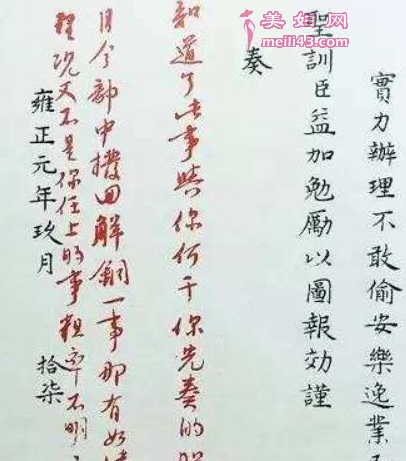 美妞网
meili43.com
實力辦理不敢偷安樂逸業
聖訓臣益加勉勵以圖報効謹
奏
知道了此事與你何干你先奏的
月令部中撥回解銅一事那有如
理況又不是你任上的事粗率不明
雍正元年玖月 拾柒